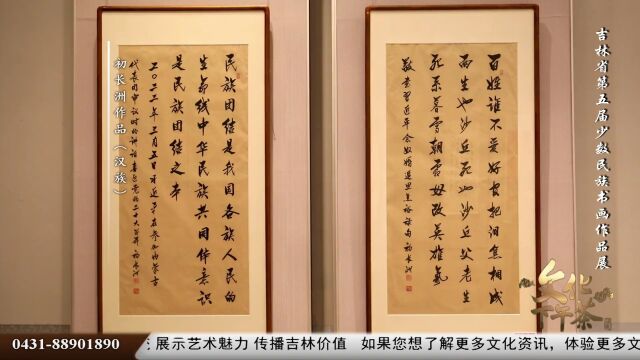 吉林省第五届少数民族书画作品展
百姓谁不爱好官把泪焦桐成
雨生也沙丘死也沙丘父老生
死系暮雪朝霜毋改英雄气
民族团结是我国各族人民的
生命线中华民族共同体意识
是民族团结之本
初长洲作品（汉族）
文化下午茶
0431-88901890
展示艺术魅力 传播吉林价值 如果您想了解更多文化资讯，体验更多文